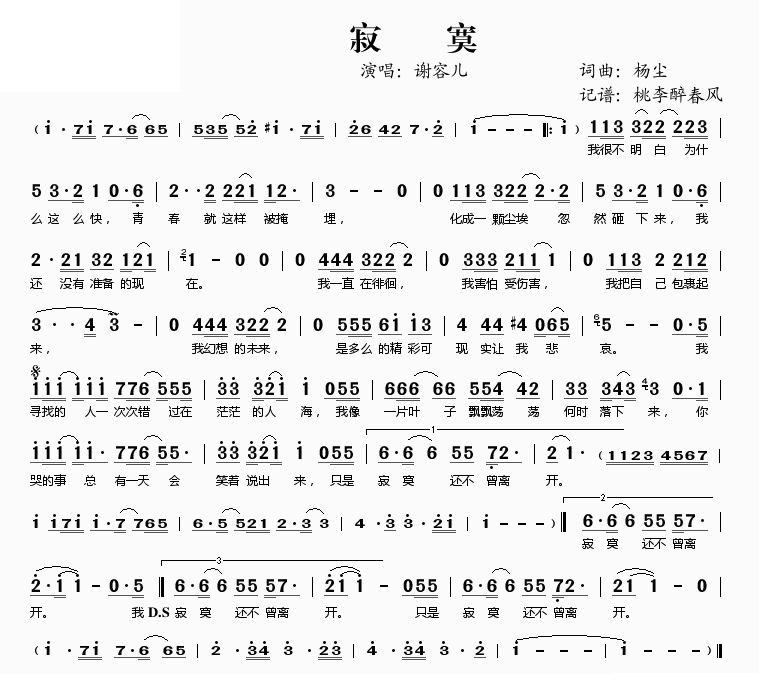 寂 寞
演唱：谢容儿 词曲：杨尘
记谱：桃李醉春风
( i · 7i 7·6 65 | 535 52 #i · 7i | 26 42 7·2 | i - - - ‖: i ) 113 322 223 |
我很不 明 白 为什
5 3·2 1 0·6 | 2··2 221 12· | 3 - - 0 | 0 113 322 2·2 | 5 3·2 1 0·6 |
么 这 么 快， 青 春 就 这样 被掩 埋， 化成一 颗尘埃 忽 然 砸 下 来， 我
2 · 21 32 121 | 2 1 - 0 0 | 0 444 322 2 | 0 333 211 1 | 0 113 2 212 |
还 没有 准备 的现 在。 我一直 在徘徊， 我害怕 受伤害， 我把自 己 包裹起
3 · · 4 3 - | 0 444 322 2 | 0 555 6i i3 | 4 44 #4 065 | 6 5 - - 0·5 |
来， 我幻想 的未来， 是多么 的精 彩可 现 实让 我 悲 哀。 我
iii iii 776 555 | 33 32i i 055 | 666 66 554 42 | 33 343 4 3 0·1 |
寻找的 人一 次次错 过在 茫茫 的人 海，我像 一片叶 子 飘飘荡 荡 何时 落下 来， 你
iii ii· 776 55· | 33 32i i 055 | 1 6·6 6 55 72· | 2 1 · (1123 4567 |
哭的事 总 有一天 会 笑着 说出 来，只是 寂 寞 还不 曾离 开。
i i7i i·7 765 | 6·5 521 2·3 3 | 4 ·3 3·2i | i - - - ) ‖ 2 6·6 6 55 57· |
寂 寞 还不 曾离
2·1 1 - 0·5 ‖ 3 6·6 6 55 57· | 2i i - 055 | 6·6 6 55 72· | 21 1 - 0 |
开。 我 D.S 寂 寞 还不 曾离 开。 只是 寂 寞 还不 曾离 开。
( i · 7i 7·6 65 | 2 · 34 3 · 23 | 4 · 34 3 · 2 | i - - - | i - - - ) ‖